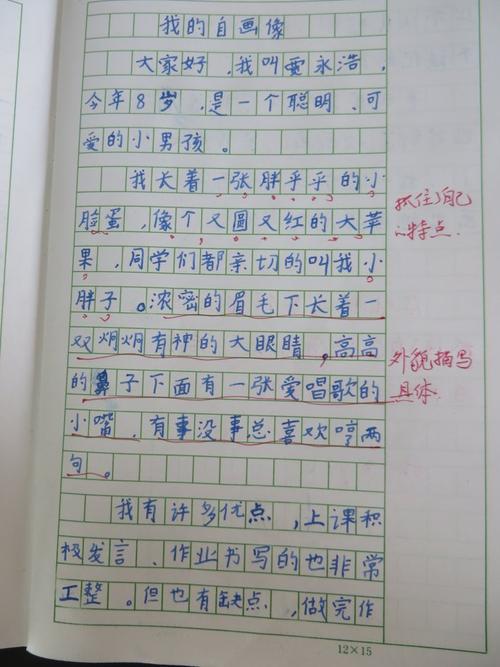 我的自画像
大家好，我叫雷永浩，
今年8岁，是一个聪明、可
爱的小男孩。
我长着一张胖乎乎的小
脸蛋，像个又圆又红的大苹
果，同学们都亲切的叫我小
胖子。浓密的眉毛下长着一
双炯炯有神的大眼睛，高高
的鼻子下面有一张爱唱歌的
小嘴，有事没事总喜欢哼两
句。
我有许多优点，上课积
极发言、作业书写的也非常
工整。但也有缺点，做完作
抓住自己
的特点.
外貌描写
具体.
12×15